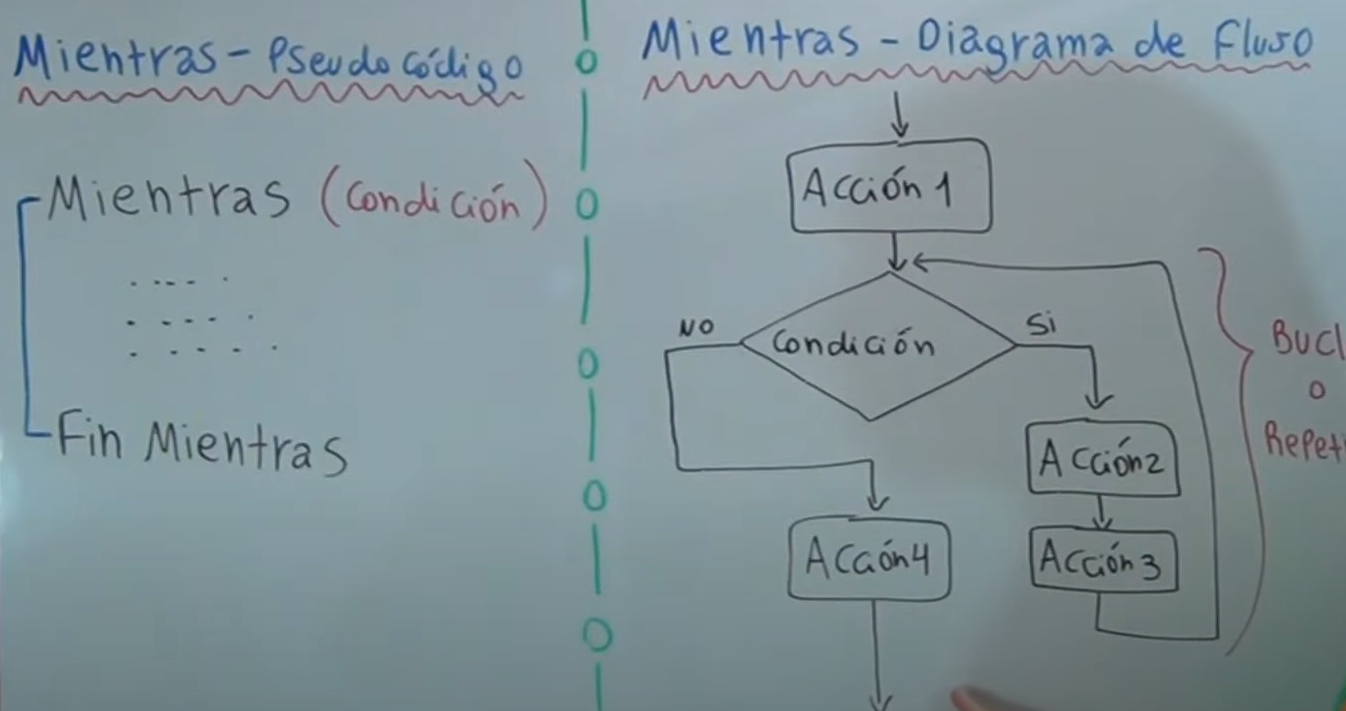 Mientras - Pseudo código
Mientras (Condición)
Fin Mientras
Mientras - Diagrama de Fluso
Acción 1
Condición
NO
Si
Acción 2
Acción 3
Acción 4
Bucl
o
Repeti